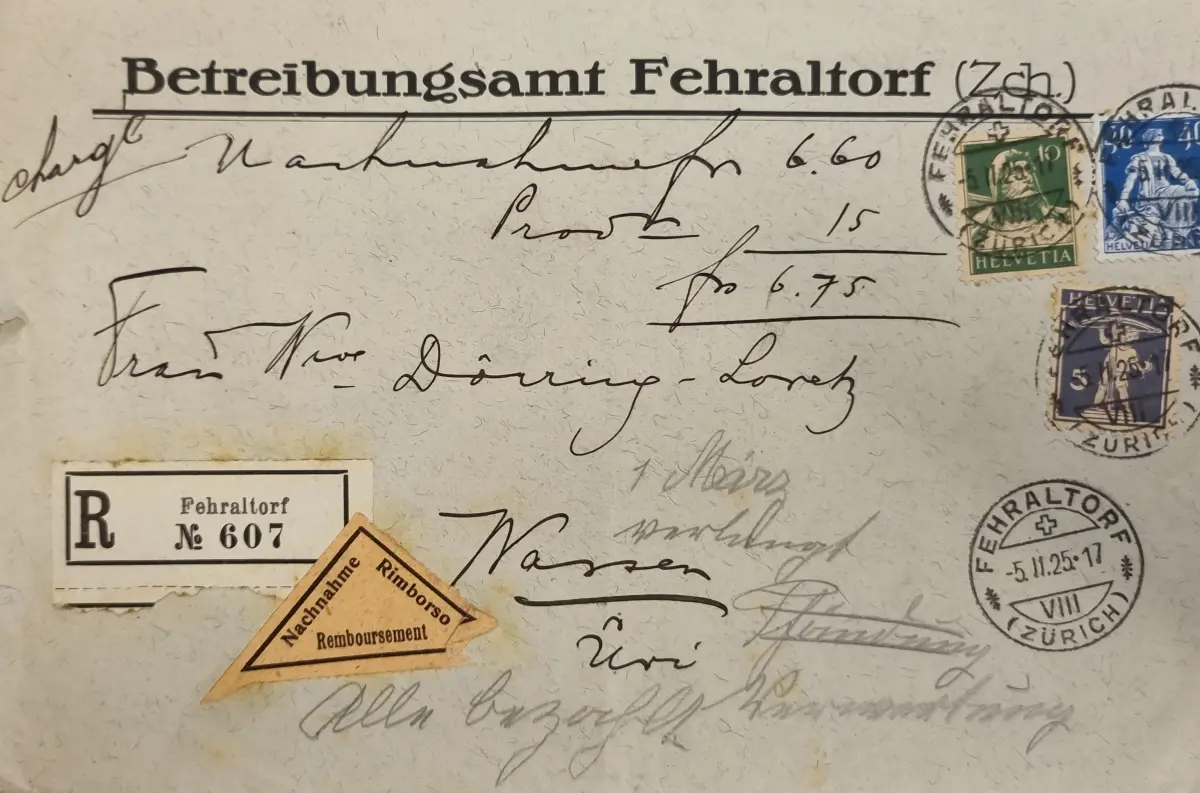 Betreibungsamt Fehraltorf (Zch.)
chargé Nachnahme fr 6.60
Prov 15
fr 6.75
Frau Wwe Döring-Loretz
Wassen
Uri
R Fehraltorf
№ 607
Nachnahme
Rimborso
Remboursement
1 März
verlangt
Pfändung
Alle bezahlt Verwertung
10
HELVETIA
FEHRALTORF
-5.II.25·17
VIII
(ZÜRICH)
40 40
HELVETIA
FEHRAL
-5.II
VIII
HELVETIA
5
-5.II.25·1
VIII
(ZÜRICH)
FEHRALTORF
-5.II.25·17
VIII
(ZÜRICH)